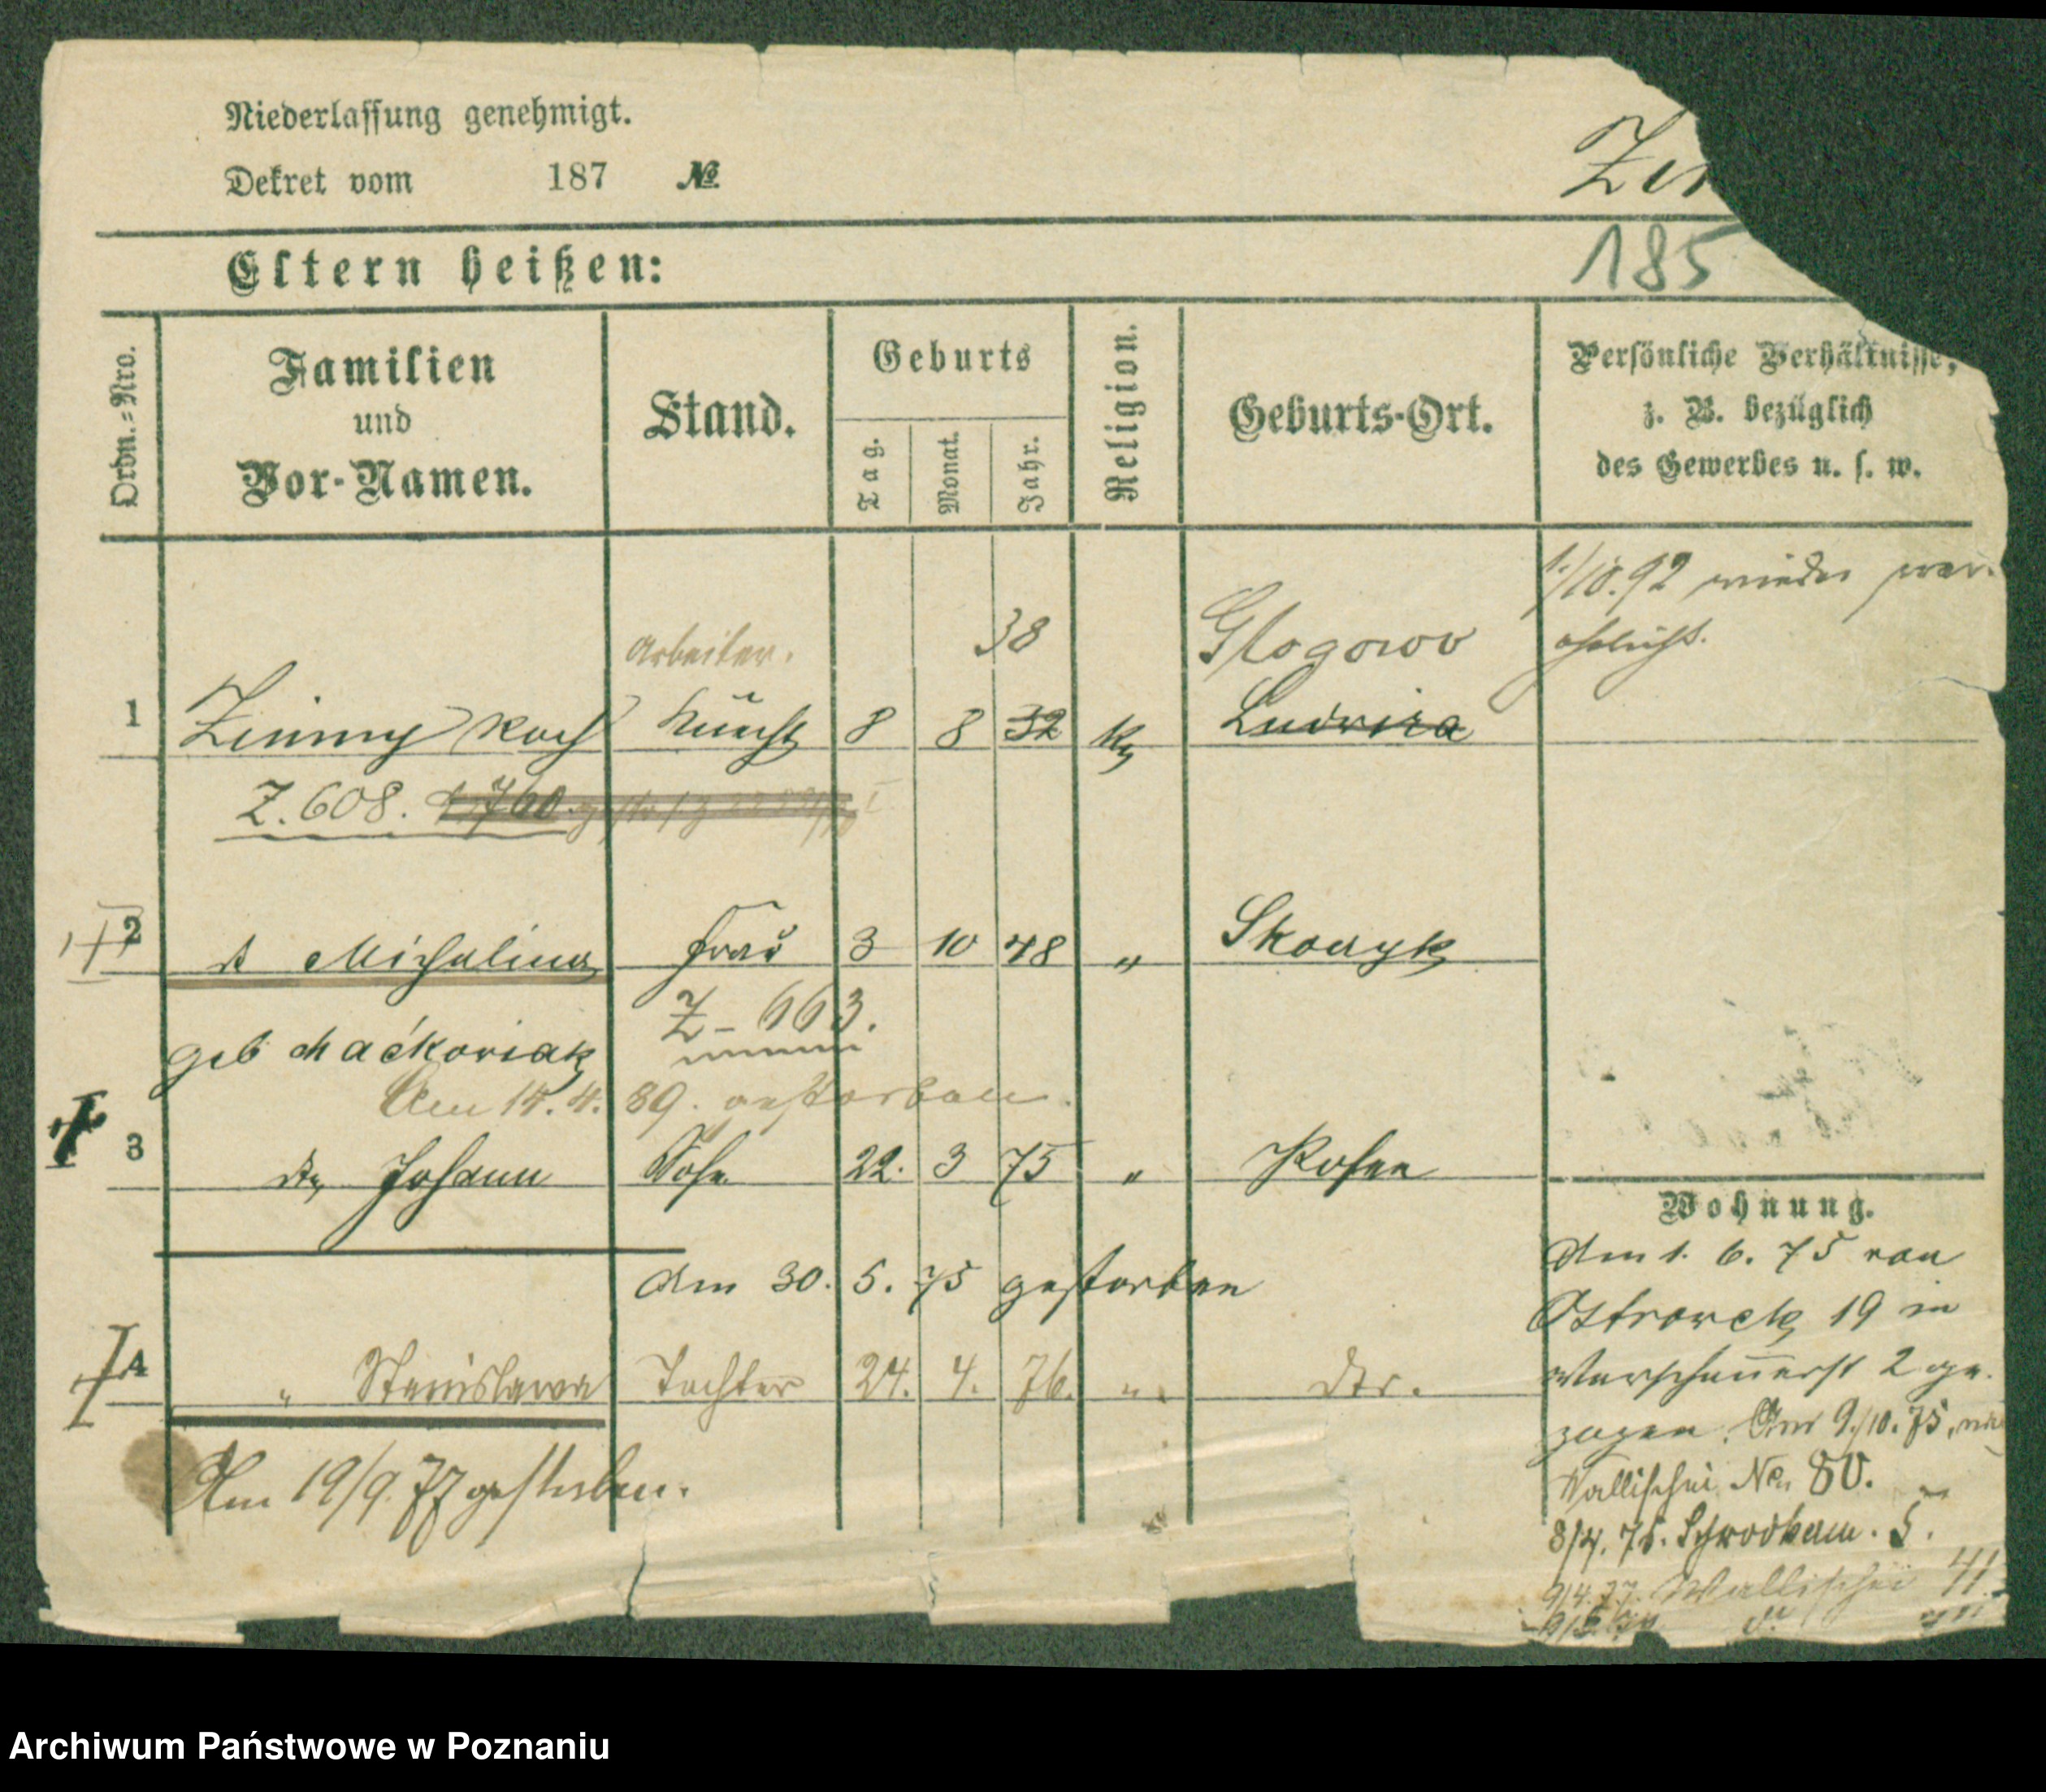 Niederlassung genehmigt.
Dekret vom 187 №
Zim
185
Eltern heißen:
Ordn.=Nro.
Familien
und
Vor-Namen.
Stand.
Geburts
Tag.
Monat.
Jahr.
Religion.
Geburts-Ort.
Persönliche Verhältnisse,
z. B. bezüglich
des Gewerbes u. s. w.
1./10.92 wieder ver-
ehelicht.
Arbeiter. 38 Glogowo
1 Zimny Roch 8 8 32 K Ludwika
Z. 608. 760
2 Michalina Frau 3 10 48 "
Z-663.
geb Maćkowiak
Am 14. 4. 89. gestorben
3 do Johann Sohn 22. 3 75 " Posen
Am 30. 5. 75 gestorben
4 " Stanislawa Tochter 24. 4. 76. " dto.
Am 19/9. 77 gestorben.
Wohnung.
Am 1. 6. 75 von
Ostrowek 19 in
2 ge-
zogen. Am 9./10. 75.
Wallischei No 80.
5.
9/4. 77. Wallischei 41
Archiwum Państwowe w Poznaniu